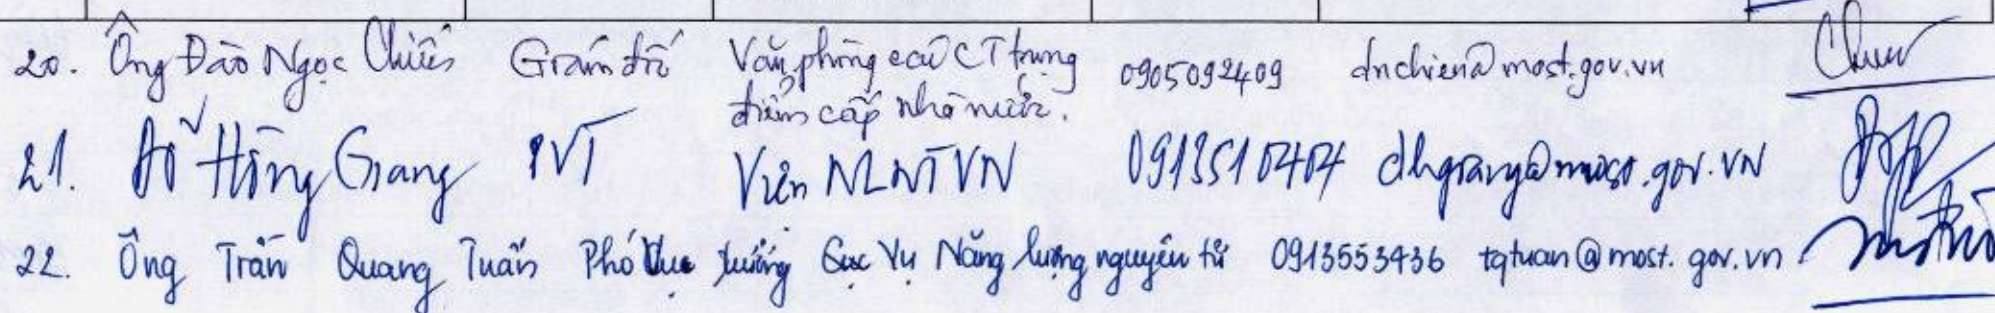 20. Ông Đào Ngọc Chiến Giám đốc Văn phòng các CT trọng 0905092409 dnchien@most.gov.vn
điểm cấp nhà nước.
21. Đỗ Hồng Giang PVT Viện NLNTVN 0913510404 dhgiang@most.gov.VN
22. Ông Trần Quang Tuấn Phó Vụ trưởng Cục Vụ Năng lượng nguyên tử 0913553436 tqtuan@most.gov.vn